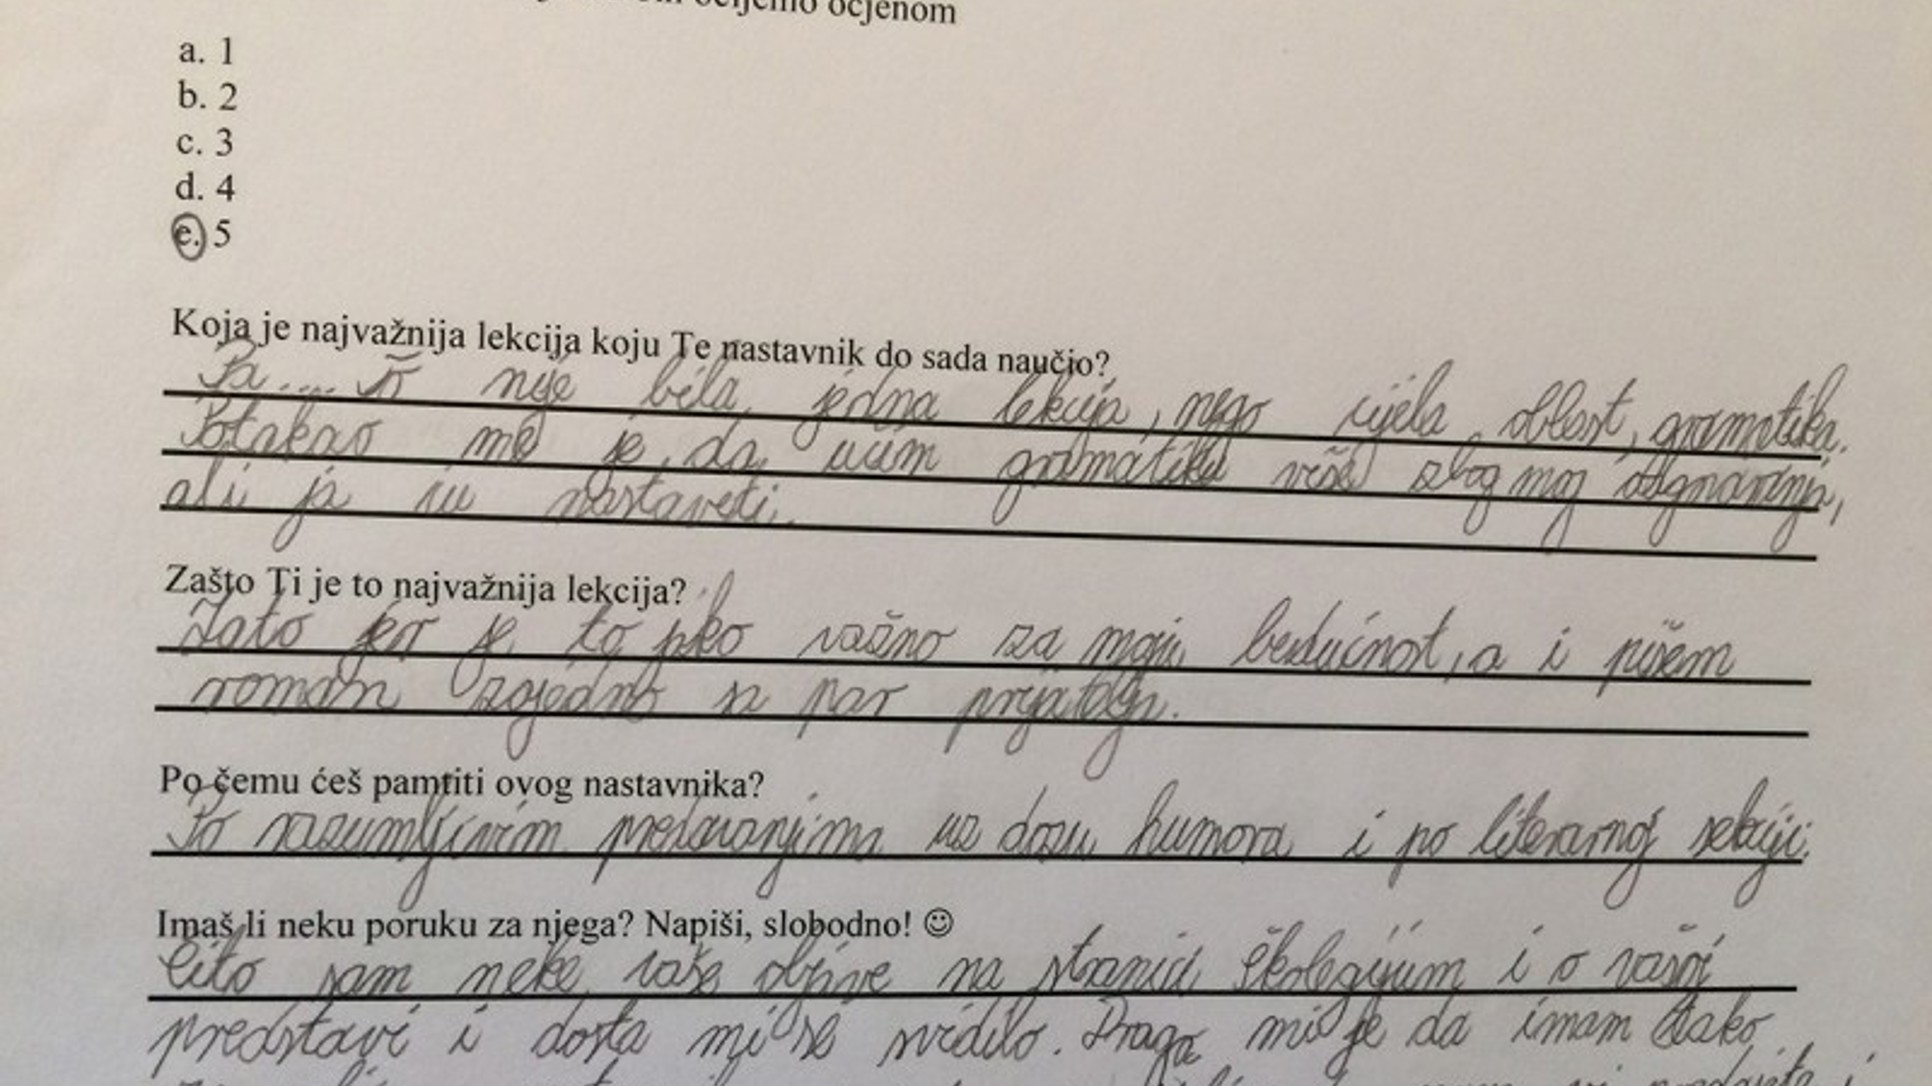 ocjenom
a. 1
b. 2
c. 3
d. 4
e. 5
Koja je najvažnija lekcija koju Te nastavnik do sada naučio?
Pa.... To nije bila jedna lekcija, nego cijela oblast, gramatika.
Potakao me je da učim gramatiku više zbog mog
ali ja ću nastaviti.
Zašto Ti je to najvažnija lekcija?
Zato jer je to jako važno za moju budućnost, a i pišem
roman zajedno sa par prijatelja.
Po čemu ćeš pamtiti ovog nastavnika?
Po razumljivim predavanjima uz dozu humora i po literarnoj sekciji.
Imaš li neku poruku za njega? Napiši, slobodno! ☺
Čito sam neke vaše objave na stranici Školegijum i o vašoj
predstavi i dosta mi se svidilo. Drago mi je da imam tako